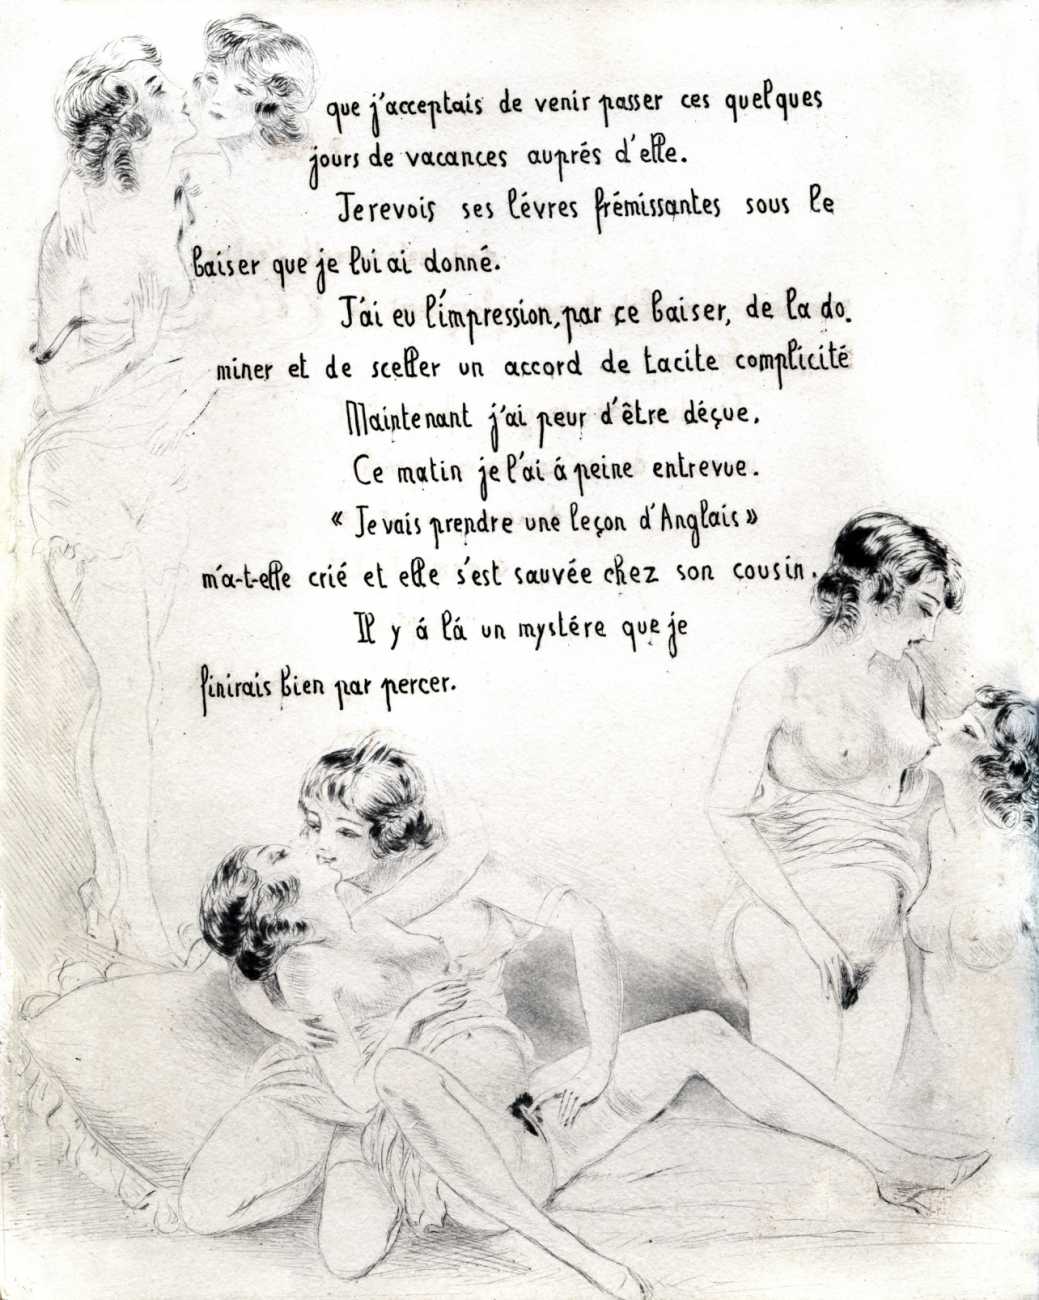 que j'acceptais de venir passer ces quelques
jours de vacances auprés d'elle.
Je revois ses lévres frémissantes sous le
baiser que je lui ai donné.
J'ai eu l'impression, par ce baiser, de la do.
miner et de sceller un accord de tacite complicité
Maintenant j'ai peur d'être déçue.
Ce matin je l'ai á peine entrevue.
« Je vais prendre une leçon d'Anglais »
m'a-t-elle crié et elle s'est sauvée chez son cousin.
Il y á lá un mystére que je
finirais bien par percer.